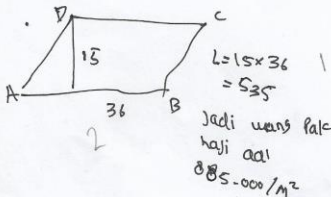 D
C
15
A
B
36
2
L = 15 × 36
= 535
1
Jadi wang Pak
haji aal
885.000/m²